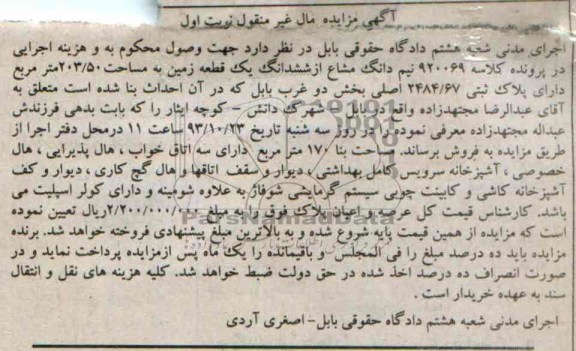 آگهی مزایده مال غیر منقول نوبت اول
اجرای مدنی شعبه هشتم دادگاه حقوقی بابل در نظر دارد جهت وصول محکوم به و هزینه اجرایی
در پرونده کلاسه ۹۲۰۰۶۹ نیم دانگ مشاع ازششدانگ یک قطعه زمین به مساحت۲۰۳/۵۰متر مربع
دارای پلاک ثبتی ۲۴۸۴/۶۷ اصلی بخش دو غرب بابل که در آن احداث بنا شده است متعلق به
آقای عبدالرضا مجتهدزاده واقع در بابل - شهرک دانش - کوچه ایثار را که بابت بدهی فرزندش
عبداله مجتهدزاده معرفی نموده را در روز سه شنبه تاریخ ۹۳/۱۰/۲۳ ساعت ۱۱ درمحل دفتر اجرا از
طریق مزایده به فروش برساند. مساحت بنا ۱۷۰ متر مربع دارای سه اتاق خواب ، هال پذیرایی ، هال
خصوصی ، آشپزخانه سرویس کامل بهداشتی ، دیوار و سقف اتاقها و هال گچ کاری ، دیوار و کف
آشپزخانه کاشی و کابینت چوبی سیستم گرمایشی شوفاژ به علاوه شومینه و دارای کولر اسپلیت می
باشد. کارشناس قیمت کل عرصه و اعیان پلاک فوق را به مبلغ ۲/۲۰۰/۰۰۰/۰۰۰ریال تعیین نموده
است که مزایده از همین قیمت پایه شروع شده و به بالاترین مبلغ پیشنهادی فروخته خواهد شد. برنده
مزایده باید ده درصد مبلغ را فی المجلس و باقیمانده را یک ماه پس ازمزایده پرداخت نماید و در
صورت انصراف ده درصد اخذ شده در حق دولت ضبط خواهد شد. کلیه هزینه های نقل و انتقال
سند به عهده خریدار است .
اجرای مدنی شعبه هشتم دادگاه حقوقی بابل- اصغری آردی